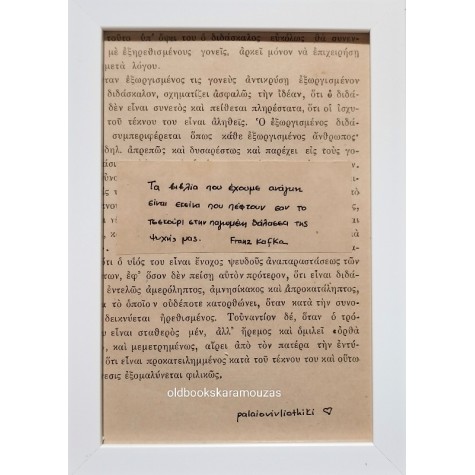 τοῦτο ὑπ' ὄψει του ὁ διδάσκαλος εὐκόλως θὰ συνε-
μὲ ἐξηρεθισμένους γονεῖς, ἀρκεῖ μόνον νὰ ἐπιχειρήσῃ
μετὰ λόγου.
ταν ἐξωργισμένος τις γονεὺς ἀντικρύσῃ ἐξωργισμένον
διδάσκαλον, σχηματίζει ἀσφαλῶς τὴν ἰδέαν, ὅτι ὁ διδά-
δὲν εἶναι συνετὸς καὶ πείθεται πληρέστατα, ὅτι οἱ ἰσχυ-
τοῦ τέκνου του εἶναι ἀληθεῖς. Ὁ ἐξωργισμένος διδά-
συμπεριφέρεται ὅπως κάθε ἐξωργισμένος ἄνθρωπος·
δηλ. ἀπρεπῶς καὶ δυσαρέστως καὶ παρέχει εἰς τοὺς γο-
Τα βιβλία που έχουμε ανάγκη
είναι εκείνα που πέφτουν σαν το
τσεκούρι στην παγωμένη θάλασσα της
ψυχής μας. Franz Kafka
ὅτι ὁ υἱός του εἶναι ἔνοχος ψευδοῦς ἀναπαραστάσεως τῶν
των, ἐφ' ὅσον δὲν πείσῃ αὐτὸν πρότερον, ὅτι εἶναι διδά-
ἐντελῶς ἀμερόληπτος, ἀμνησίκακος καὶ ἀπροκατάληπτος,
τὸ ὁποῖον οὐδέποτε κατορθώνει, ὅταν κατὰ τὴν συνο-
δεικνύεται ἠρεθισμένος. Τοὐναντίον δέ, ὅταν ὁ τρό-
υ εἶναι σταθερὸς μέν, ἀλλ' ἤρεμος καὶ ὁμιλεῖ «ὀρθὰ
, καὶ μεμετρημένως, αἴρει ἀπὸ τὸν πατέρα τὴν ἐντύ-
ὅτι εἶναι προκατειλημμένος κατὰ τοῦ τέκνου του καὶ οὕτω
γεσις ἐξομαλύνεται φιλικῶς,
oldbookskaramouzas
palaiovivliothiki